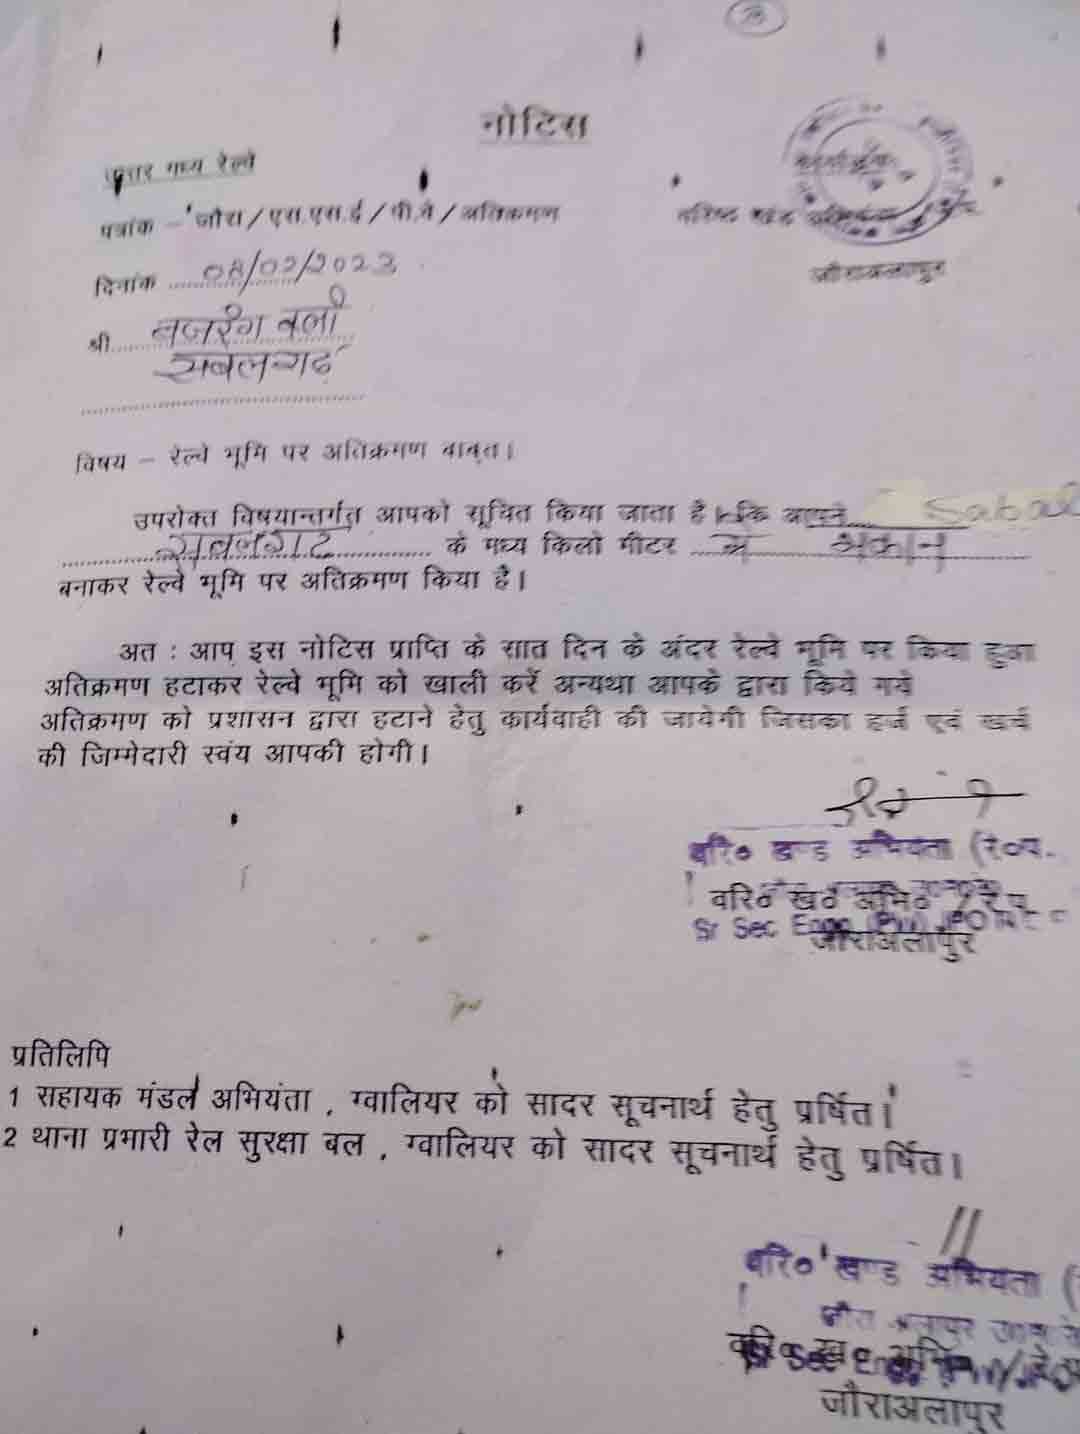 नोटिस
उत्तर मध्य रेल्वे
पत्रांक - जौरा/एस.एस.ई/पी.वे/अतिक्रमण
वरिष्ठ खंड अभियंता
दिनांक 08/02/2023
जौराअलापुर
श्री बजरंग बली
सबलगढ़
विषय – रेल्वे भूमि पर अतिक्रमण बाबत।
उपरोक्त विषयान्तर्गत आपको सूचित किया जाता है कि आपने Sabal
सबलगढ के मध्य किलो मीटर में मकान
बनाकर रेल्वे भूमि पर अतिक्रमण किया है।
अत : आप इस नोटिस प्राप्ति के सात दिन के अंदर रेल्वे भूमि पर किया हुआ
अतिक्रमण हटाकर रेल्वे भूमि को खाली करें अन्यथा आपके द्वारा किये गये
अतिक्रमण को प्रशासन द्वारा हटाने हेतु कार्यवाही की जावेगी जिसका हर्ज एवं खर्च
की जिम्मेदारी स्वंय आपकी होगी।
वरि० खण्ड अभियंता (रे०प.
वरि० ख० अभि० / रे प
Sr Sec Engg (PW)
जौराअलापुर
प्रतिलिपि
1 सहायक मंडल अभियंता , ग्वालियर को सादर सूचनार्थ हेतु प्रर्षित।
2 थाना प्रभारी रेल सुरक्षा बल , ग्वालियर को सादर सूचनार्थ हेतु प्रर्षित।
वरि० खण्ड अभियंता (
जौरा अलापुर
Sr Sec Engg
जौराअलापुर